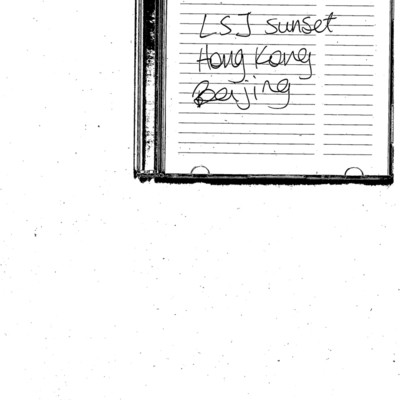 LSJ sunset
Hong Kong
Beijing